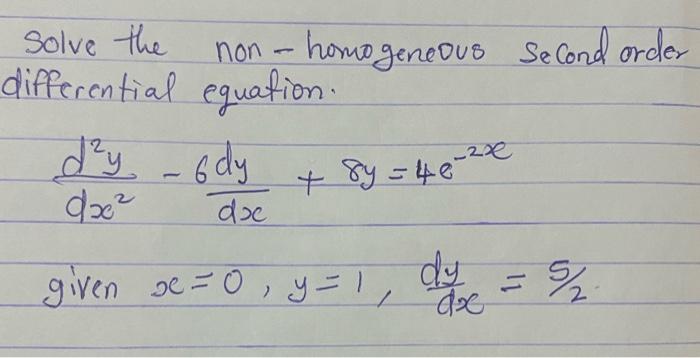 Solve the non-homogeneous second order
differential equation.
d²y/dx² - 6 dy/dx + 8y = 4e^-2x
given x=0, y=1, dy/dx = 5/2.